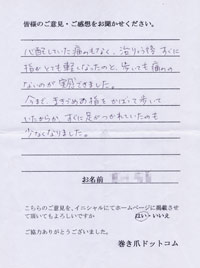 皆様のご意見・ご感想をお聞かせください。
心配していた痛みもなく、治りょう後すぐに
指がとても軽くなったのと、歩いても痛みの
ないのが実感できました。
今まで、まきづめの指をかばって歩いて
いたからか、すぐに足がつかれていたのも
少なくなりました。
お名前
こちらのご意見を、イニシャルにてホームページに掲載させ
て頂いてもよろしいですか はい・いいえ
ご協力ありがとうございました。
巻き爪ドットコム